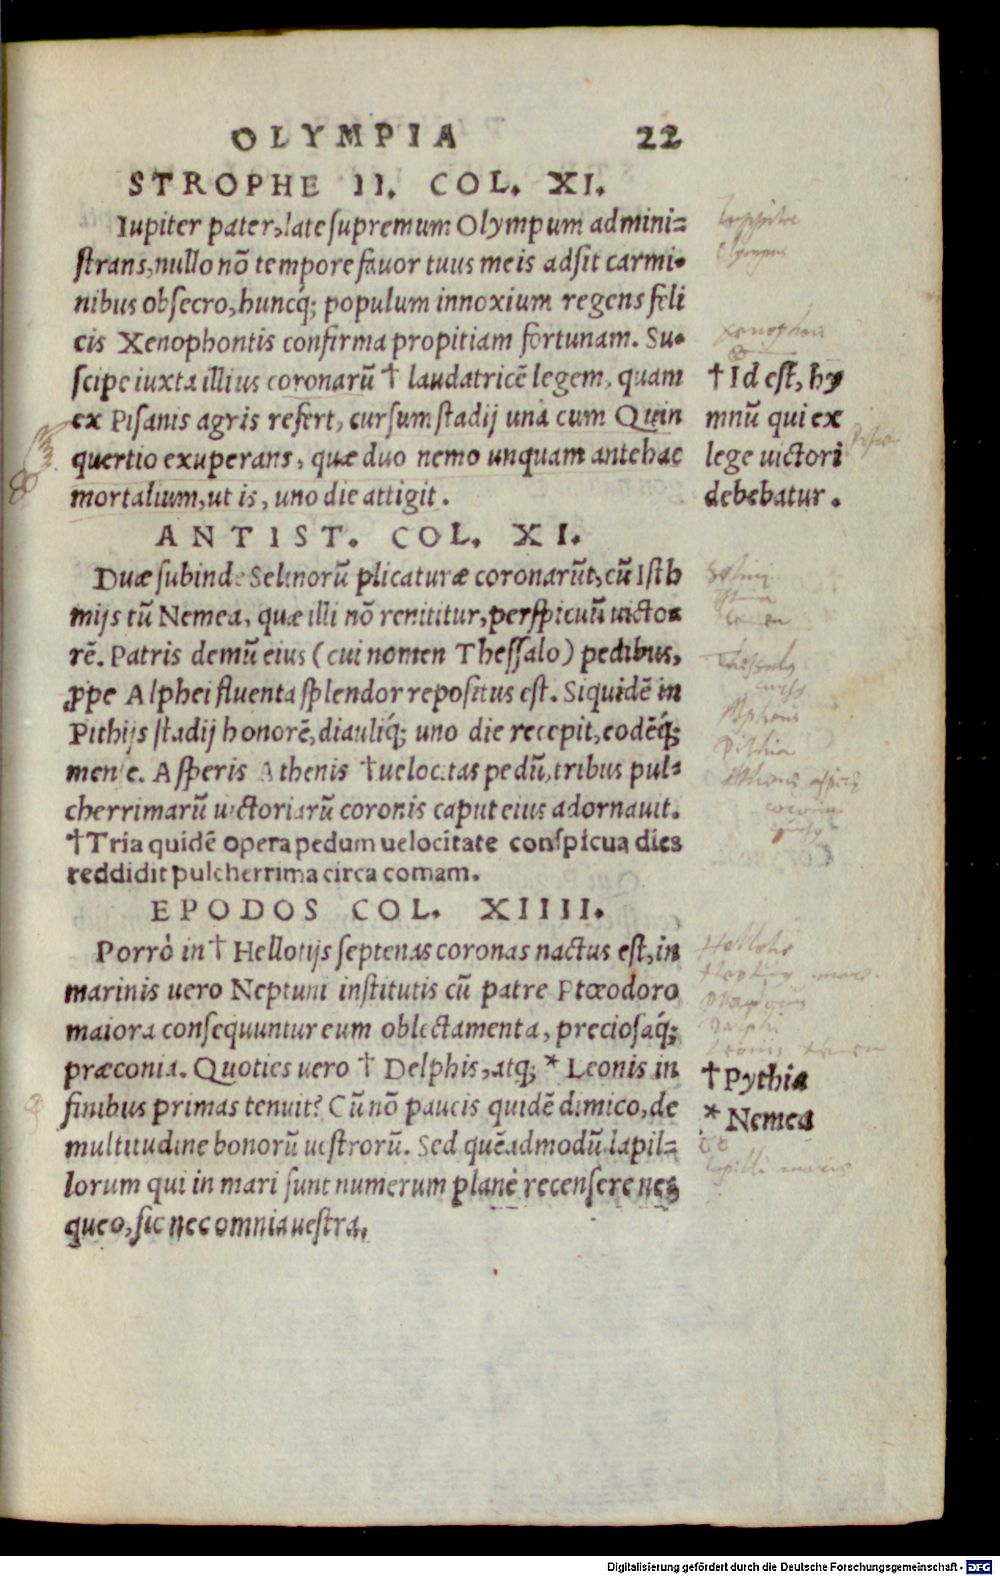 OLYMPIA 22
STROPHE II. COL. XI.
Iupiter pater, late supremum Olympum admini=
strans, nullo nō tempore favor tuus meis adsit carmi-
nibus obsecro, huncq́; populum innoxium regens feli
cis Xenophontis confirma propitiam fortunam. Su-
scipe iuxta illius coronarū † laudatricē legem, quam
ex Pisanis agris refert, cursum stadij unà cum Quin
quertio exuperans, quæ duo nemo unquam antehac
mortalium, ut is, uno die attigit.
† Id est, hy
mnū qui ex
lege uictori
debebatur.
ANTIST. COL. XI.
Duæ subinde Selinorū plicaturæ coronarūt, cū Isth
mijs tū Nemea, quæ illi nō renititur, perspicuū uicto-
rē. Patris demū eius (cui nomen Thessalo) pedibus,
ꝓpe Alphei fluenta splendor repositus est. Siquidē in
Pithijs stadij honorē, diauliq́; uno die recepit, eodēq́;
mense. Asperis Athenis † uelocitas pedū, tribus pul=
cherrimarū uictoriarū coronis caput eius adornauit.
†Tria quidē opera pedum uelocitate conspicua dies
reddidit pulcherrima circa comam.
EPODOS COL. XIIII.
Porrò in † Hellotijs septenas coronas nactus est, in
marinis uero Neptuni institutis cū patre Ptœodoro
maiora consequuntur eum oblectamenta, preciosaq́;
præconia. Quoties uero † Delphis, atq; * Leonis in
finibus primas tenuit? Cū nō paucis quidē dimico, de
multitudine bonorū uestrorū. Sed quēadmodū lapil=
lorum qui in mari sunt numerum planè recensere ne-
queo, sic nec omnia uestra.
† Pythia
* Nemea
Xenophon
Alpheus
Pithia
lapilli maris
Digitalisierung gefördert durch die Deutsche Forschungsgemeinschaft - DFG